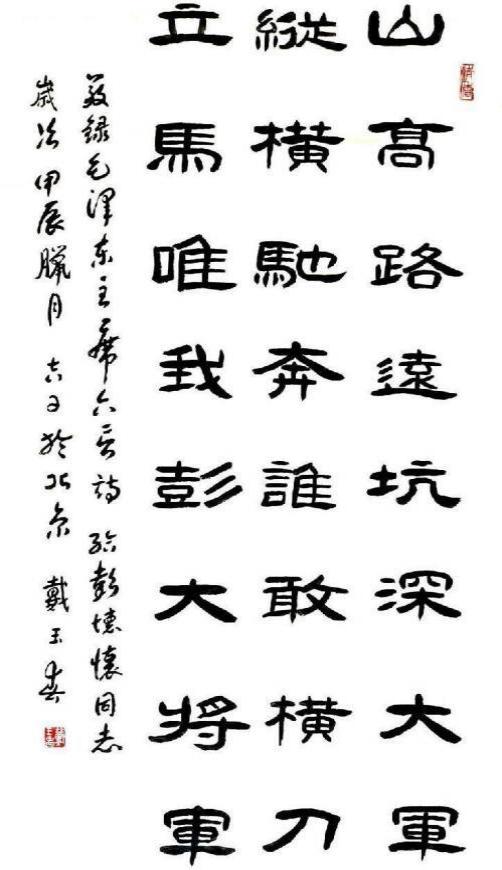 山高路遠坑深大軍
縱橫馳奔誰敢橫刀
立馬唯我彭大將軍
敬録毛澤东主席六言詩給彭德懷同志
歲次甲辰臘月吉日於北京戴玉春